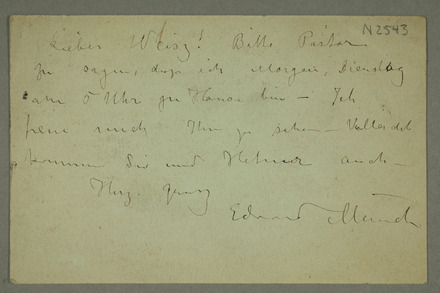 N 2543
Lieber Weisz! Bitte Pastor
zu sagen, dass ich Morgen, Dienstag
um 5 Uhr zu Hause bin – Ich
freue mich Ihn zu sehen –
kommen Sie und auch –
Herz.
Edvard Munch